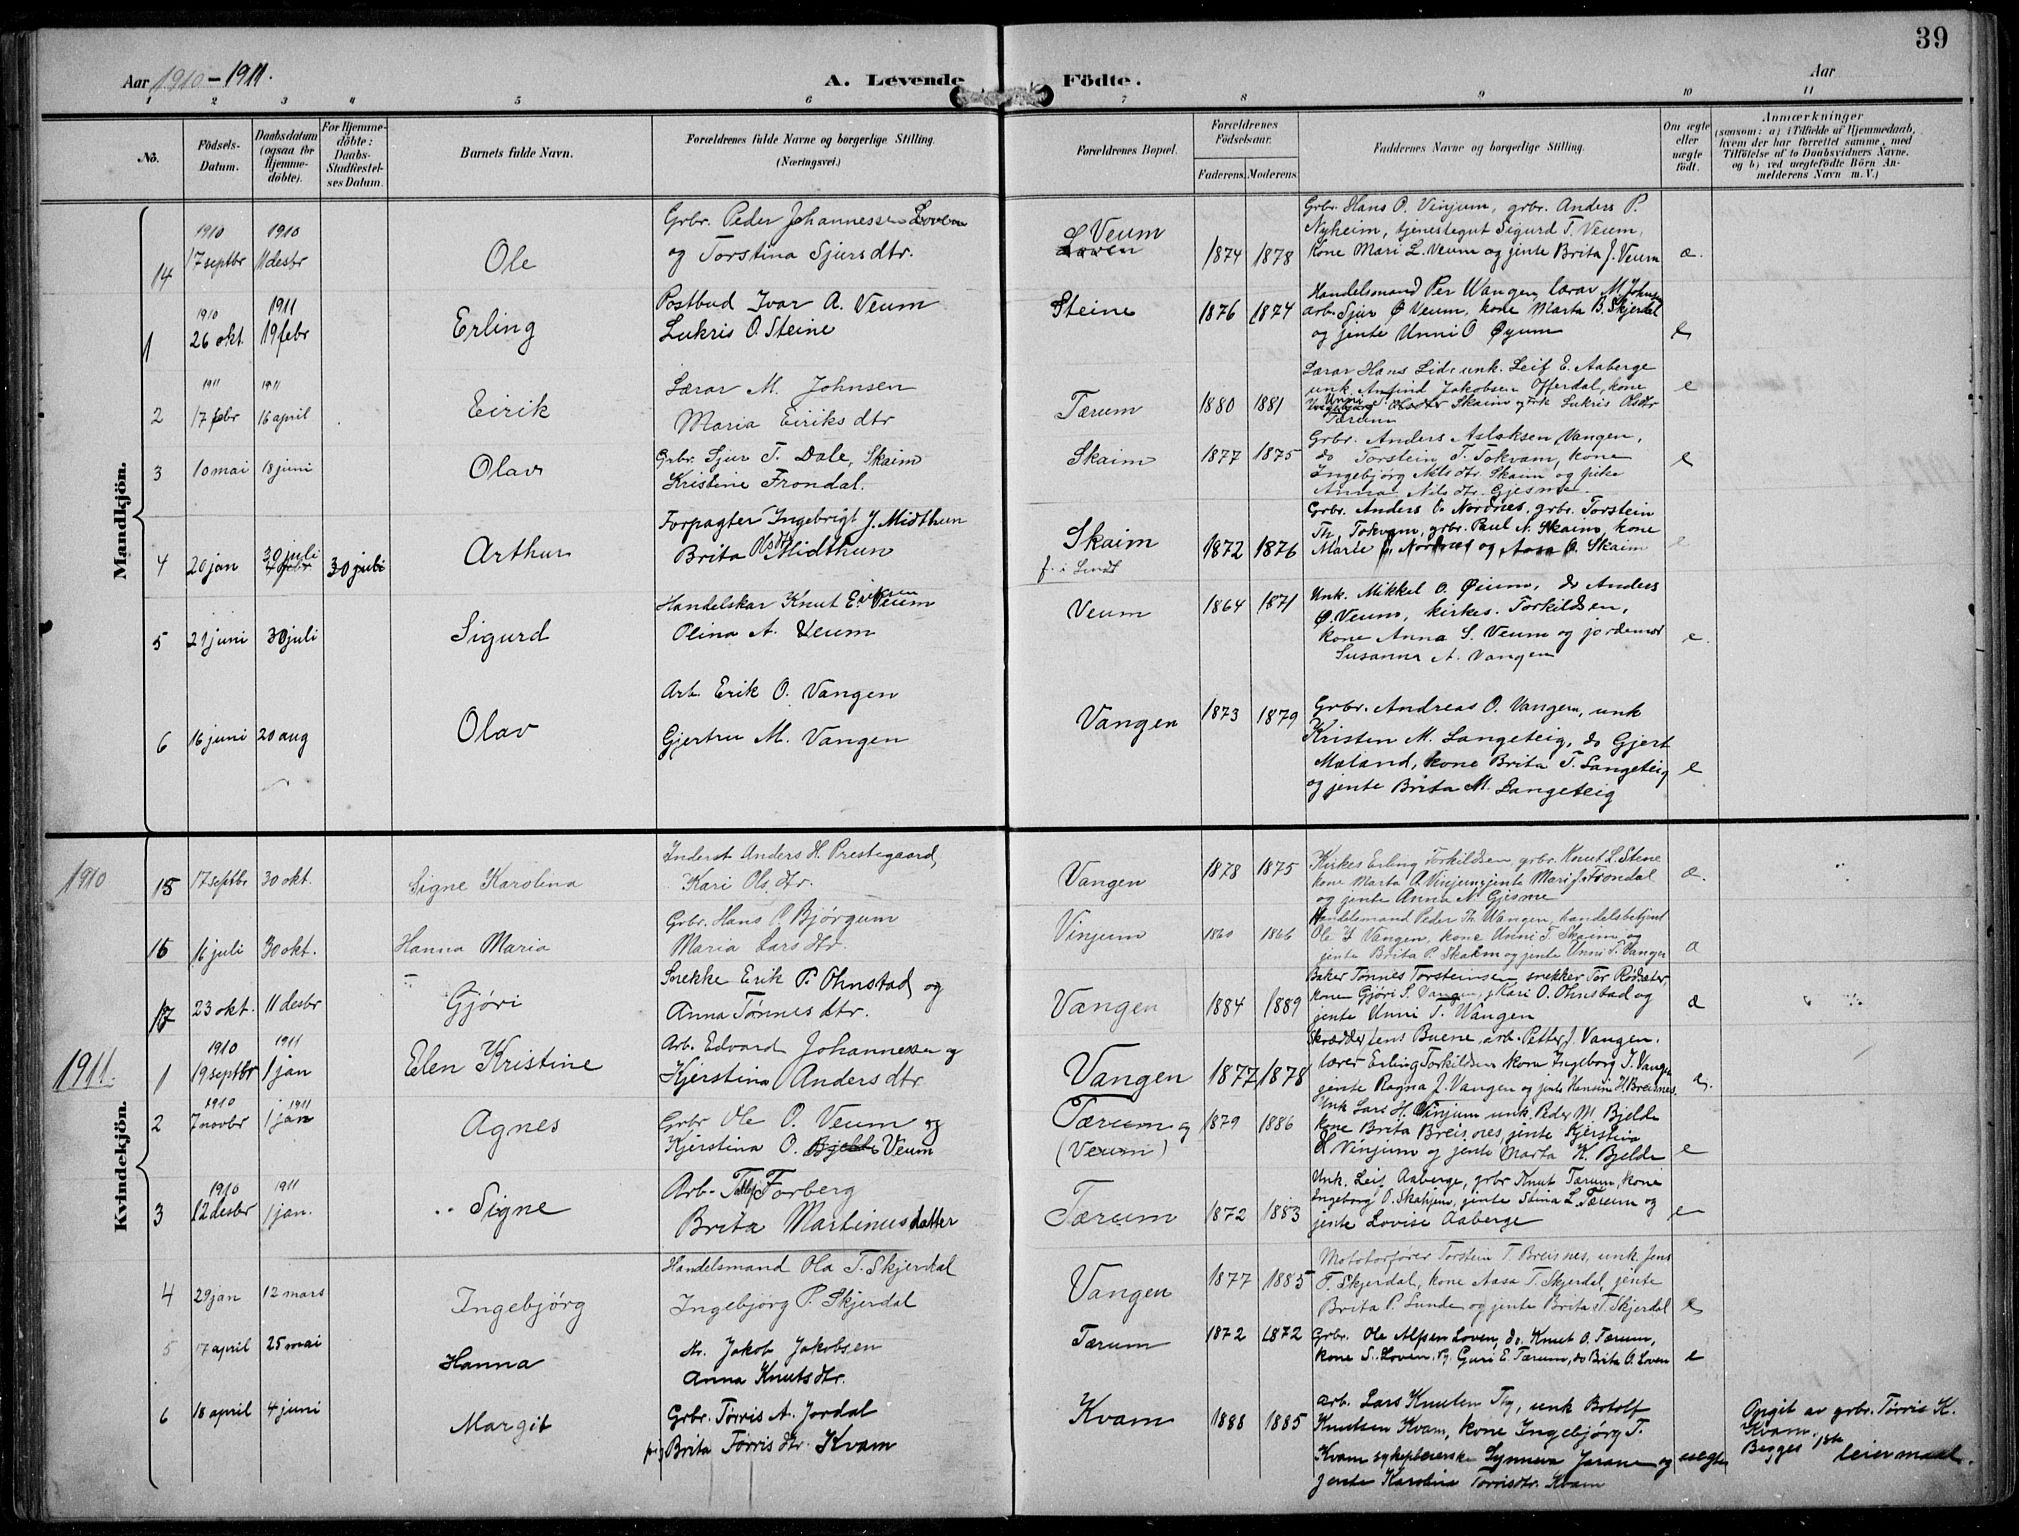 39
Aar 1910-1911.
A. Levende Födte.
Aar
1 2 3 4 5 6 7 8 9 10 11
No.
Födsels-Datum.
Daabsdatum (ogsaa for Hjemme-döbte).
For Hjemme-döbte: Daabs-Stadfæstel-ses Datum.
Barnets fulde Navn.
Forældrenes fulde Navne og borgerlige Stilling. (Næringsvei.)
Forældrenes Bopæl.
Forældrenes Födselsaar.
Faderens. Moderens.
Faddernes Navne og borgerlige Stilling.
Om ægte eller uægte födt.
Anmærkninger
(saasom: a) i Tilfælde af Hjemmedaab,
hvem der har forrettet samme, med
Tilföielse af to Daabsvidners Navne.
og b) ved uægtefödte Börn An-
melderens Navn m. V.)
Mandkjön.
14 1910 17 septbr 1910 11 desbr Ole
Grbr. Peder Johannessen Loven
og Torstina Sjursdtr.
Veum
Loven
1874 1878
Grbr. Hans O. Vinjum, grbr. Anders P.
Nyheim, tjenestegut Sigurd T. Veum,
Kone Mari L. Veum og jente Brita J. Veum
æ.
1 1910 26 okt. 1911 19 febr Erling
Postbud Ivar A. Veum
Lukris O. Steine
Steine 1876 1874
Handelsmand Per Wangen, lærar M. Johnsen
arb. Sjur Ø Veum, kone Marta B. Skjerdal
og jente Unni O Øyum
e
2 1911 17 febr 1911 16 april Eirik
Lærar M. Johnsen
Maria Eiriksdtr
Tærum 1880 1881
Lærar Hans Lid, unk. Leif E. Aaberge
unk. Anfind Jakobsen Offerdal, kone
Unni Olsdtr Skaim og Lukris Olsdtr
Tærum
e
3 10 mai 18 juni Olav
Grbr. Sjur T. Dale, Skaim
Kristine Frondal.
Skaim 1877 1875
Grbr. Anders Aslaksen Vangen,
do Torstein T. Tokvam, kone
Ingebjørg Nilsdtr. Skaim og pike
Anna Nilsdtr. Gjesme.
e
4 20 jan 30 juli 30 juli Arthur
Forpagter Ingebrigt J. Midthun
Brita Olsdtr Midthun
Skaim
1872 1876
Grbr. Anders O. Nordnes, grbr. Torstein
Th. Tokvam, grbr. Paul N. Skaim, kone
Marte Nordnes og Aasa O. Skaim
e
5 21 juni 30 juli Sigurd
Handelskar Knut Eriksen Veum
Olina A. Veum
Veum 1864 1871
Unk. Mikkel O. Øium, do Anders
Ø. Veum, kirkes. Torkildsen,
kone Anna S. Veum og jordemor
Susanna A. Vangen
e.
6 16 juni 20 aug Olav
Arb. Erik O. Vangen
Gjertru M. Vangen
Vangen 1873 1879
Grbr. Andreas O. Vangen, unk
Kristen M. Langeteig, do Gjert
Mæland, kone Brita T. Langeteig
og jente Brita M. Langeteig
e
Kvindekjön.
1910
15 17 septbr 30 okt. Signe Karolina
Inderst Anders H. Prestegaard,
Kari Olsdtr.
Vangen 1878 1875
Kirkes Erling Torkildsen, grbr. Knut L. Stene
kone Marta A. Vinjum, jente Mari J. Frondal
og jente Anna N. Gjesme
æ.
16 16 juli 30 okt. Hanna Maria
Grbr. Hans P. Bjørgum
Maria Larsdtr.
Vinjum 1860 1866
Handelsmand Peder Th. Wangen, handelsbetjent
Ole I Vangen, kone Unni T. Skaim og
jente Brita P. Skahm og jente Unni T. Vangen
æ
17 23 okt. 11 desbr Gjøri
Snekke Erik P. Ohnstad og
Anna Tønnesdtr.
Vangen 1884 1889
Baker Tønnes Torsteinsen snekker Tor Rødsæter
kone Gjøri S. Vangen, Kari O. Ohnstad og
jente Unni T. Vangen
æ
1911.
1 1910 19 septbr 1911 1 jan Elen Kristine
Arb. Edvard Johannessen og
Kjerstina Andersdtr.
Vangen 1877 1878
Skrædder Jens Buene, arb. Petter J. Vangen.
lærer Erling Torkildsen kone Ingeborg I. Vangen
jente Ragna J. Vangen og jente Hansine H. Breisnes.
æ.
2 1910 7 novbr 1911 1 jan Agnes
Grbr Ole O. Veum og
Kjerstina O. Bjelde Veum
Tærum og
(Veum)
1879 1886
Unk Lars H. Vinjum unk. Peder M Bjelde
kone Brita Breisnes, jente Kjerstina
H. Vinjum og jente Marta K. Bjelde
e
3 1910 12 desbr 1911 1 jan. Signe
Arb- Forberg
Brita Martinusdatter
Tærum 1872 1883
Unk. Leif Aaberge, grbr Knut Tærum, kone
Ingeborg O. Skahjem, jente Stina L. Tærum og
jente Lovise Aaberge
e
4 29 jan 12 mars Ingebjörg
Handelsmand Ola T. Skjerdal
Ingebjörg P. Skjerdal
Vangen 1877 1885
Mototorfører Torstein T. Breisnes, unk. Jens
T. Skjerdal, kone Aasa T. Skjerdal, jente
Brita P. Lunde og jente Brita T. Skjerdal
e
5 17 april 25 mai Hanna
Jakob Jakobsen
Anna Knutsdtr.
Tærum 1872 1872
Grbr. Ole Alfsen Loven, do. Knut O. Tærum,
kone S. Loven, Guri E. Tærum, do Brita O. Loven
e
6 18 april 4 juni Margit
Grbr. Tørris A. Jordal
pig Brita Tørrisdtr. Kvam
Kvam 1888 1885
arb. Lars Knutsen Thy, unk Botolf
Knutsen Kvam, kone Ingebjørg T.
Kvam sykepleierske Synneva Jarane og
jente Karolina Tørrisdtr. Kvam
uægte
Opgit av grbr. Tørris K.
Kvam.
Begges 1ste
leiermaal.